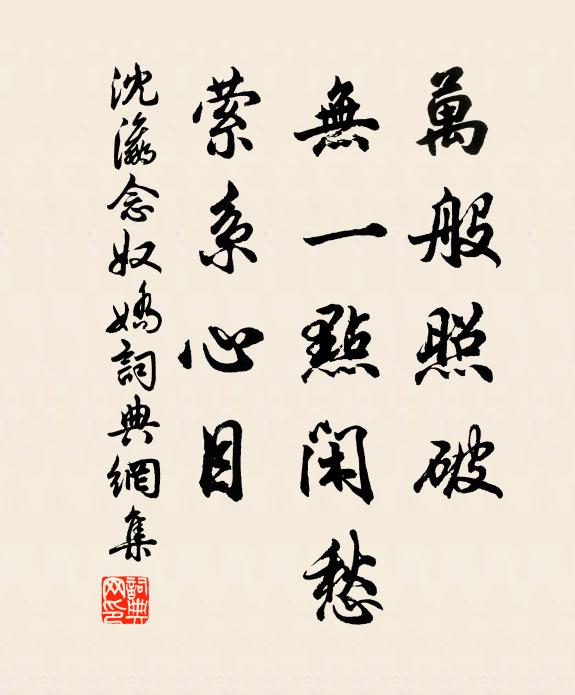 萬般照破
無一點閑愁
縈系心目
沈瀛念奴嬌詞典網集
詞典
网印